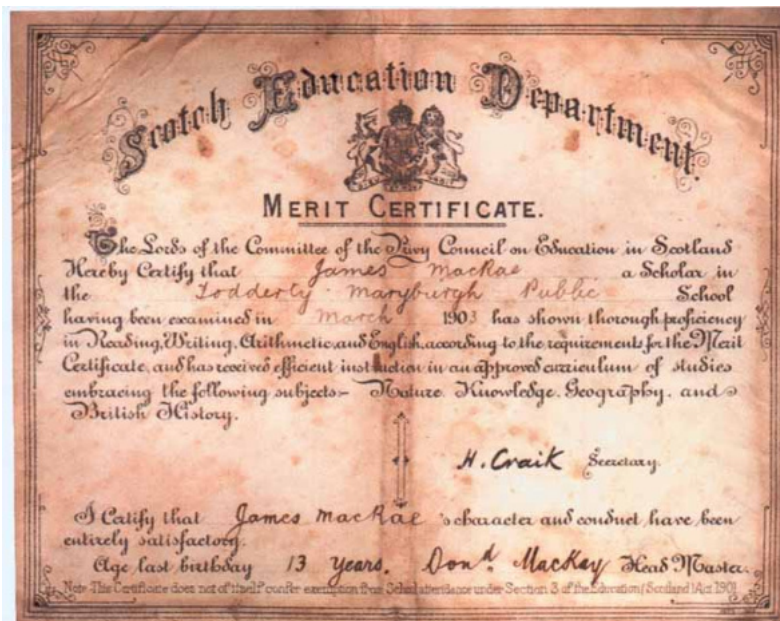 Scotch Education Department.
MERIT CERTIFICATE.
The Lords of the Committee of the Privy Council on Education in Scotland
Hereby Certify that James MacRae a Scholar in
the Fodderty Maryburgh Public School
having been examined in March 1903 has shown thorough proficiency
in Reading, Writing, Arithmetic, and English, according to the requirements for the Merit
Certificate, and has received efficient instruction in an approved curriculum of studies
embracing the following subjects:- Nature Knowledge, Geography, and
British History.
H. Craik Secretary.
I Certify that James MacRae 's character and conduct have been
entirely satisfactory.
Age last birthday 13 Years. Dond MacKay Head Master.
Note: This Certificate does not of itself confer exemption from School attendance under Section 3 of the Education (Scotland) Act 1901